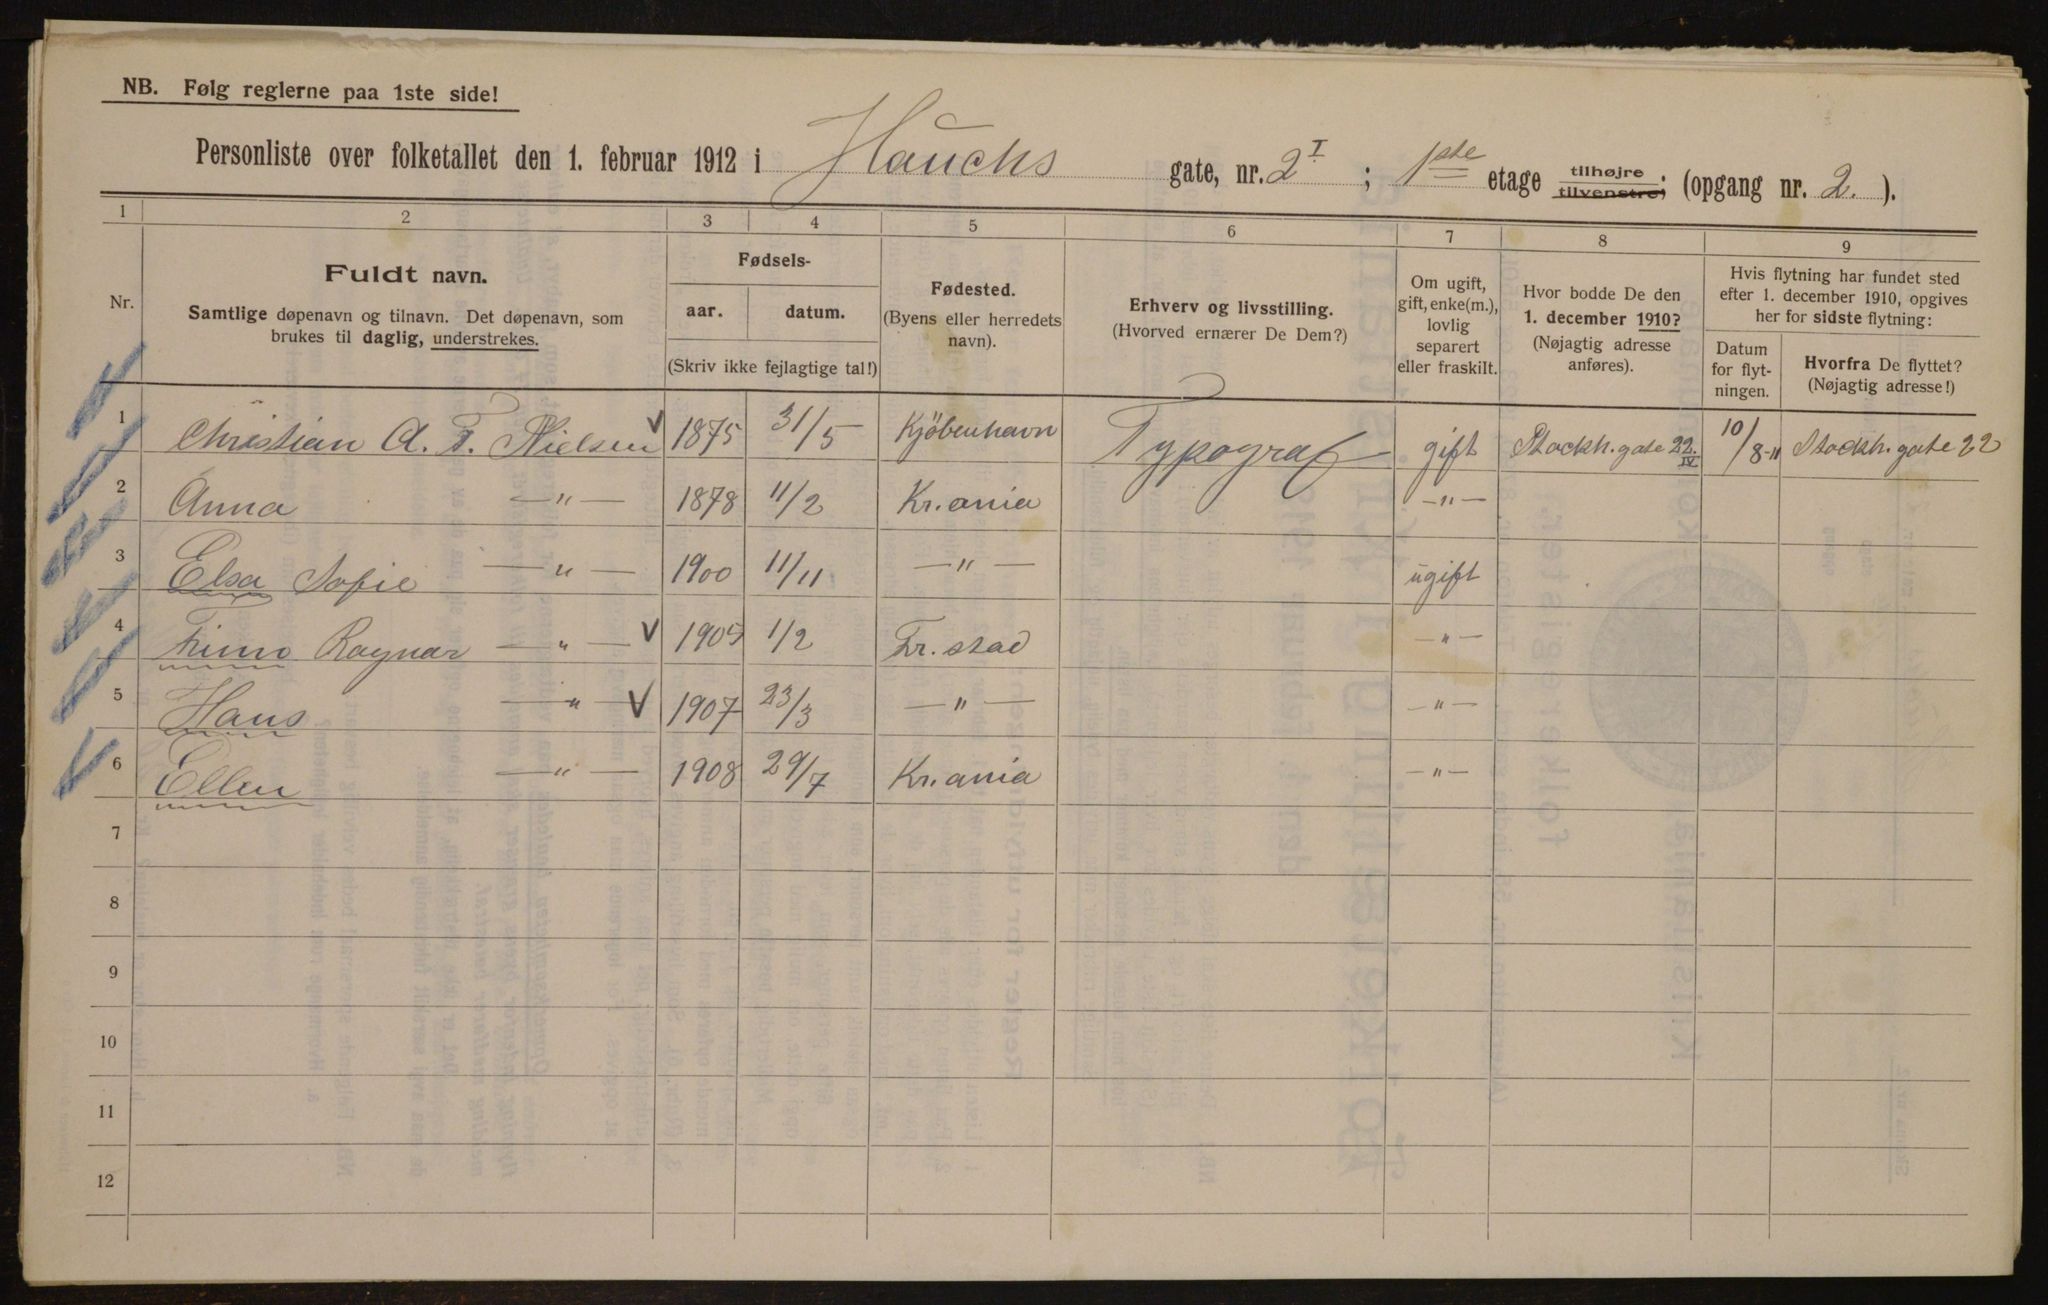 NB. Følg reglerne paa 1ste side!
Personliste over folketallet den 1. februar 1912 i Hauchs gate, nr. 2 I ; 1ste etage tilhøjre tilvenstre; (opgang nr. 2. ).
1 2 3 4 5 6 7 8 9
Nr.
Fuldt navn.
Samtlige døpenavn og tilnavn. Det døpenavn, som
brukes til daglig, understrekes.
Fødsels-
aar. datum.
(Skriv ikke fejlagtige tal!)
Fødested.
(Byens eller herredets
navn).
Erhverv og livsstilling.
(Hvorved ernærer De Dem?)
Om ugift,
gift, enke(m.),
lovlig
separert
eller fraskilt.
Hvor bodde De den
1. december 1910?
(Nøjagtig adresse
anføres).
Hvis flytning har fundet sted
efter 1. december 1910, opgives
her for sidste flytning:
Datum
for flyt-
ningen.
Hvorfra De flyttet?
(Nøjagtig adresse!)
1 Christian A. F. Nielsen 1875 31/5 Kjöbenhavn Typograf gift Stockh. gate 22. IV 10/8-11 Stockh. gate 22
2 Anna —"— 1878 11/2 Kr.ania —"—
3 Elsa Sofie —"— 1900 11/11 —"— ugift
4 Ragnar —"— 1905 1/2 Fr.stad —"—
5 Hans —"— 1907 23/3 —"— —"—
6 Ellen —"— 1908 29/7 Kr.ania —"—
7
8
9
10
11
12